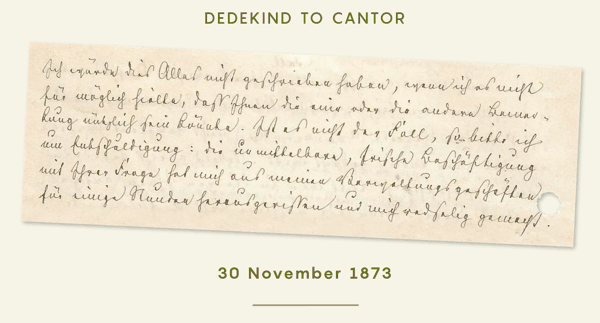 DEDEKIND TO CANTOR
Ich würde dies Alles nicht geschrieben haben, wenn ich es nicht
für möglich hielte, daß Ihnen die eine oder die andere Bemer-
kung nützlich sein könnte. Ist es nicht der Fall, so bitte ich
um Entschuldigung: die unmittelbare, frische Beschäftigung
mit Ihrer Frage hat mich aus meinen Verwaltungsgeschäften
für einige Stunden herausgerissen und mich redselig gemacht.
30 November 1873